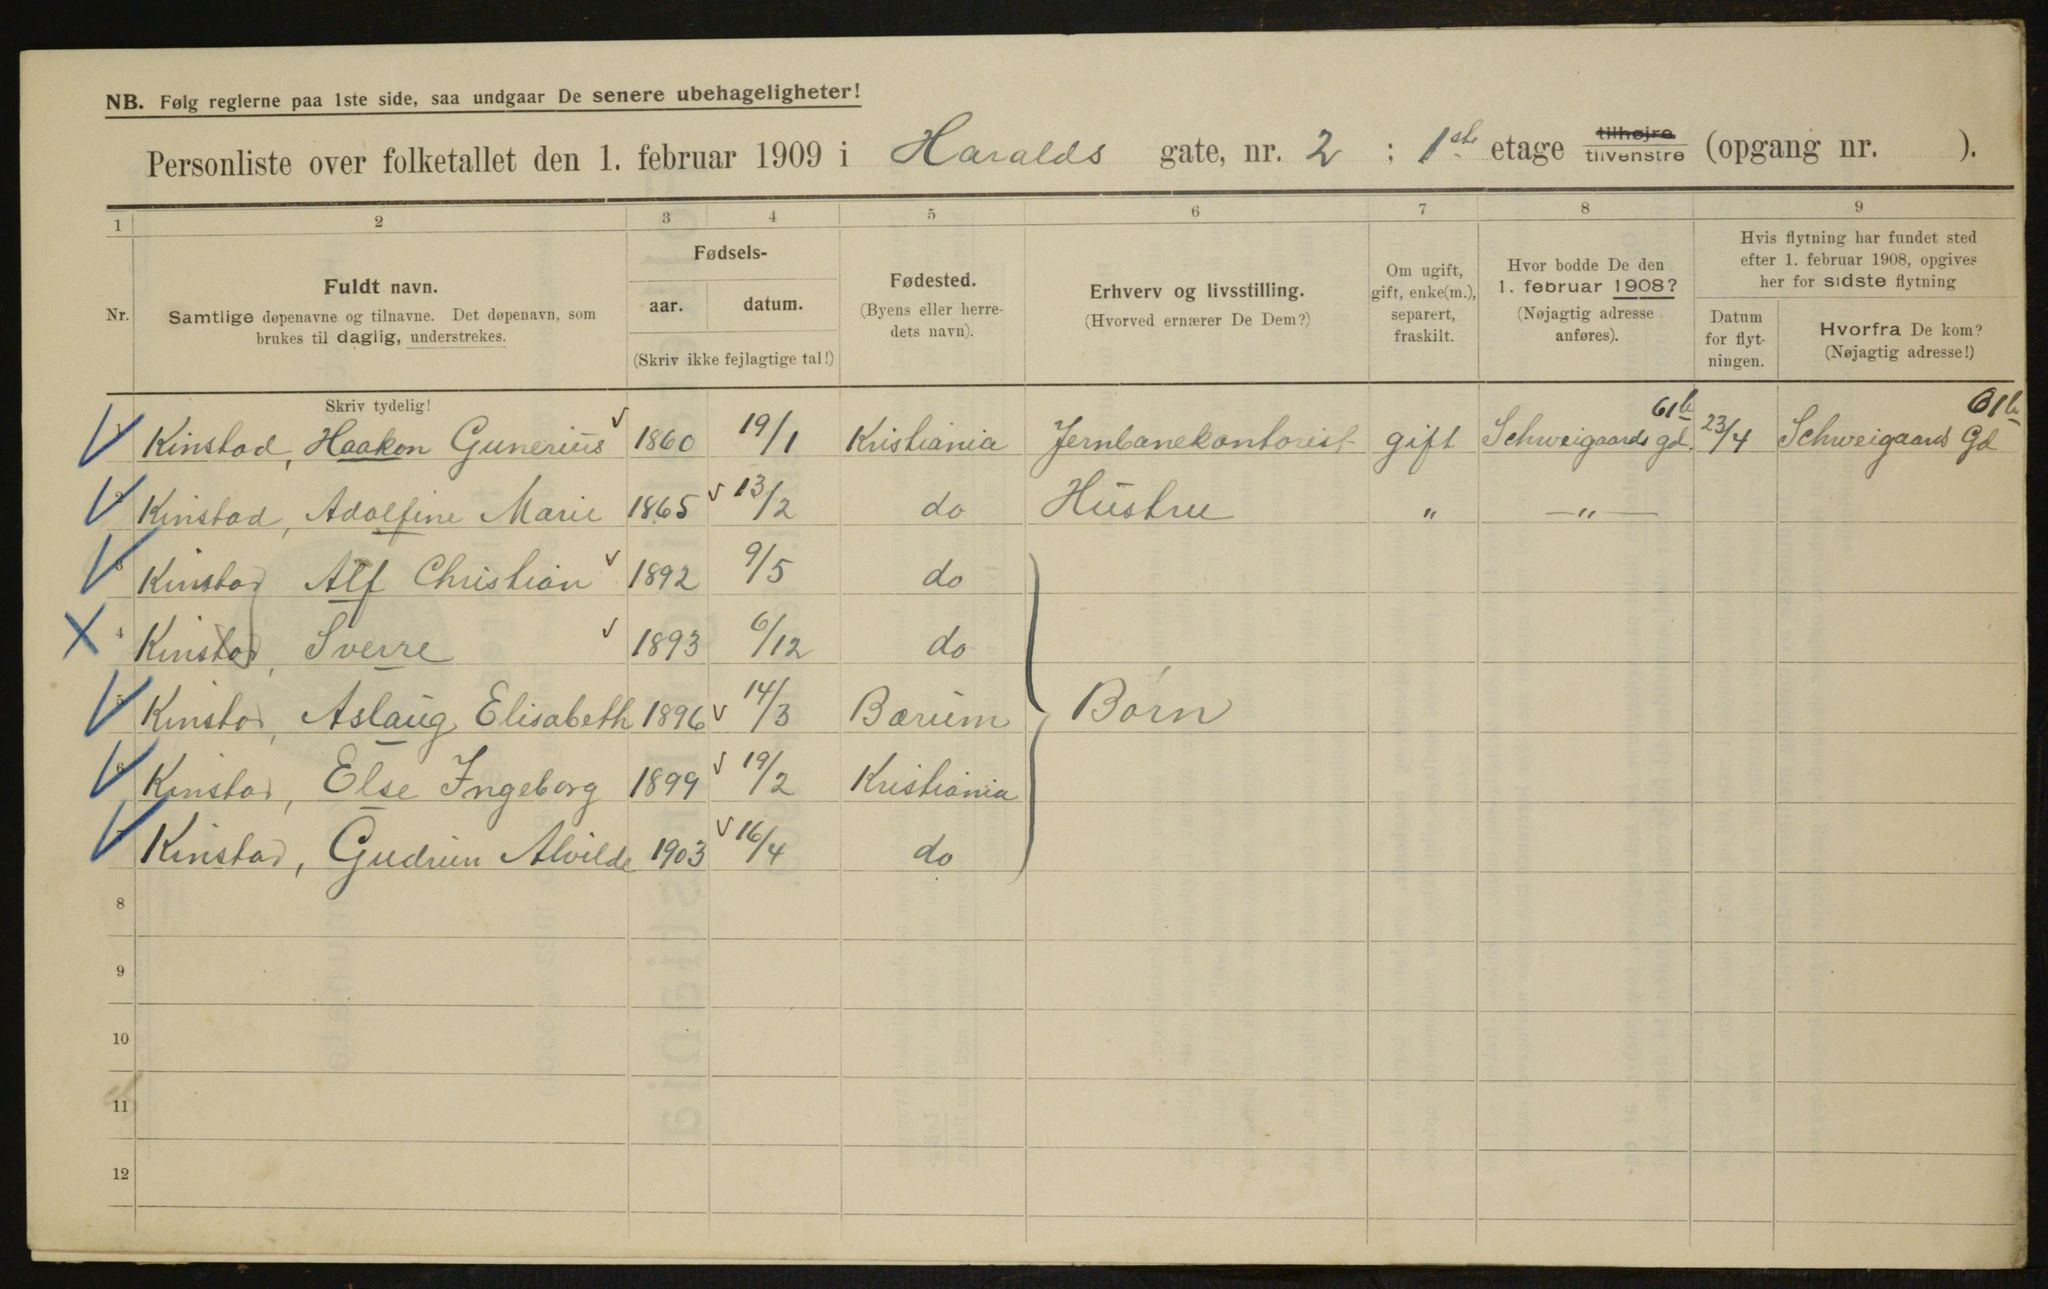 NB. Følg reglerne paa 1ste side, saa undgaar De senere ubehageligheter!
Personliste over folketallet den 1. februar 1909 i Haralds gate, nr. 2 ; 1ste etage tilhøjre tilvenstre (opgang nr. ).
1 2 3 4 5 6 7 8 9
Nr.
Fuldt navn.
Samtlige døpenavne og tilnavne. Det døpenavn, som
brukes til daglig, understrekes.
Skriv tydelig!
Fødsels-
aar. datum.
(Skriv ikke fejlagtige tal!)
Fødested.
(Byens eller herre-
dets navn).
Erhverv og livsstilling.
(Hvorved ernærer De Dem?)
Om ugift,
gift, enke(m.),
separert,
fraskilt.
Hvor bodde De den
1. februar 1908?
(Nøjagtig adresse
anføres).
Hvis flytning har fundet sted
efter 1. februar 1908, opgives
her for sidste flytning
Datum
for flyt-
ningen.
Hvorfra De kom?
(Nøjagtig adresse!)
Kinstad, Haakon Gunerius 1860 19/1 Kristiania Jernbanekontorist gift Schweigaards gd. 61b 23/4 Schweigaards Gd 61b
Kinstad, Adolfine Marie 1865 13/2 do Hustru " —"—
3 Kinstad Alf Christian 1892 9/5 do
4 Kinstad, Sverre 1893 6/12 do
5 Kinstad, Aslaug Elisabeth 1896 14/3 Bærum Børn
6 Kinstad, Else Ingeborg 1899 19/2 Kristiania
Kinstad, Gudrun Alvilde 1903 16/4 do
8
9
10
11
12